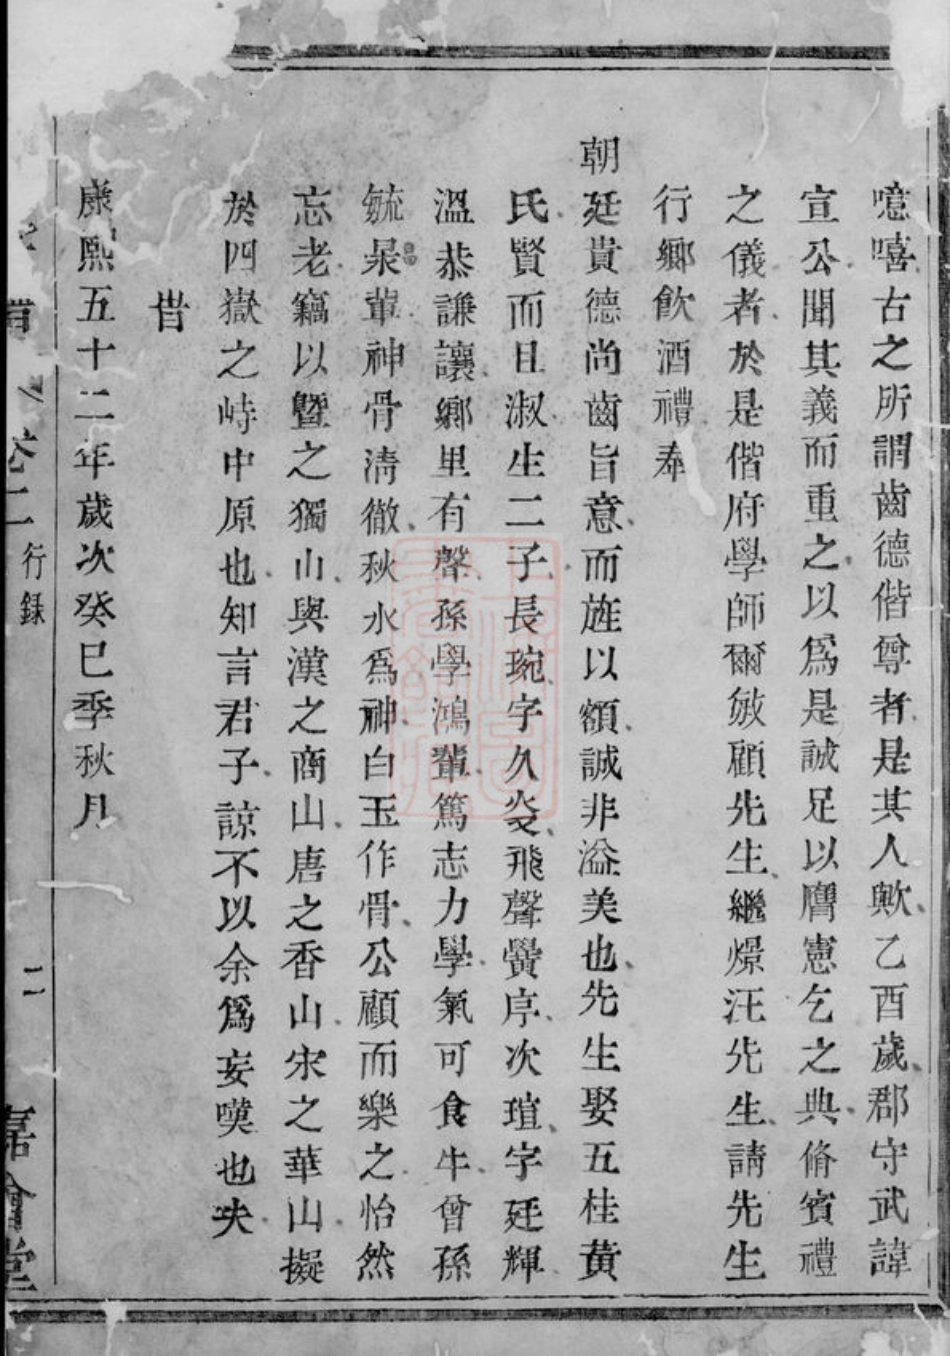 噫嘻古之所謂齒德偕尊者是其人歟乙酉歲郡守武諱
宣公聞其義而重之以爲是誠足以膺憲乞之典脩賓禮
之儀者於是偕府學師爾敓顧先生繼燝汪先生請先生
行鄉飲酒禮奉
朝廷貴德尚齒旨意而旌以額誠非溢美也先生娶五桂黄
氏賢而且淑生二子長琬字久炎飛聲黌序次瑄字廷輝
溫恭謙讓鄉里有聲孫學鴻輩篤志力學氣可食牛曾孫
毓杲輩神骨清徹秋水爲神白玉作骨公顧而樂之怡然
忘老竊以曁之獨山與漢之商山唐之香山宋之華山擬
於四嶽之峙中原也知言君子諒不以余爲妄嘆也夫
旹
康熙五十二年歲次癸巳季秋月
卷二 行錄 二 嘉會堂